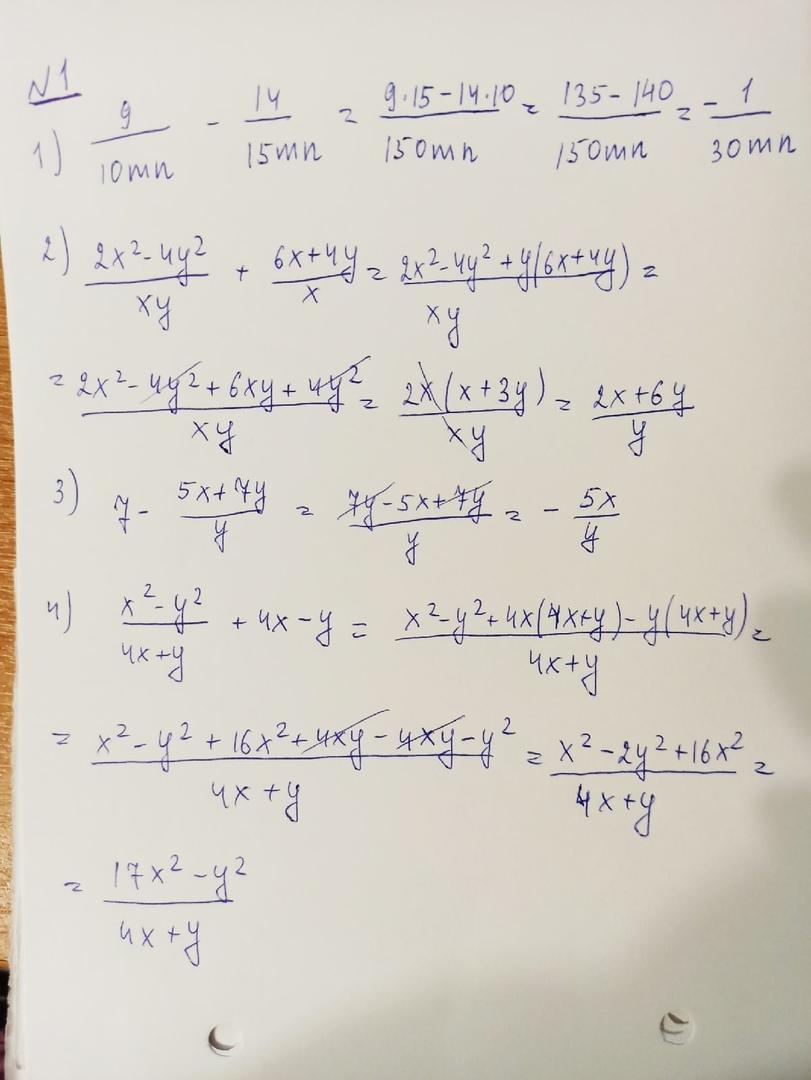 N1
1) 9/10mn - 14/15mn = 9·15-14·10/150mn = 135-140/150mn = - 1/30mn
2) 2x²-4y²/xy + 6x+4y/x = 2x²-4y²+y(6x+4y)/xy =
= 2x²-4y²+6xy+4y²/xy = 2x(x+3y)/xy = 2x+6y/y
3) 7- 5x+7y/y = 7y-5x+7y/y = - 5x/y
4) x²-y²/4x+y + 4x-y = x²-y²+4x(4x+y)-y(4x+y)/4x+y =
= x²-y²+16x²+4xy-4xy-y²/4x+y = x²-2y²+16x²/4x+y =
= 17x²-y²/4x+y